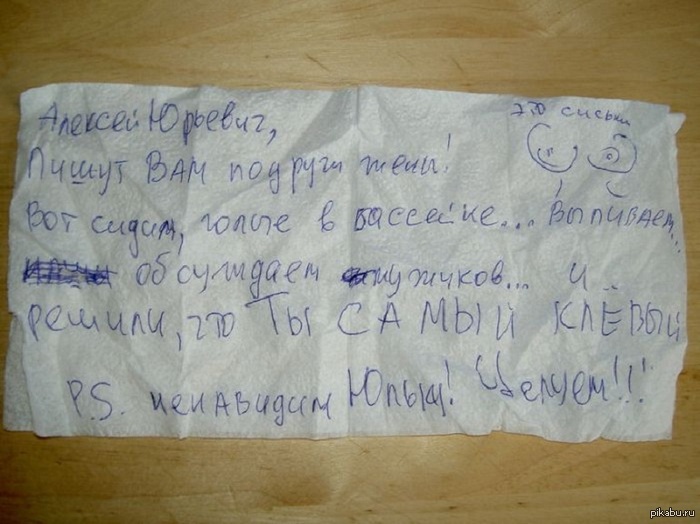 это сиськи
Алексей Юрьевич,
Пишут ВАМ подруги жены!
Вот сидим, голые в бассейне... Выпиваем...
обсуждаем мужчков... и..
решили, что ТЫ САМЫЙ КЛЁВЫЙ
P.S. ненавидим Юльку! Целуем!!!
pikabu.ru